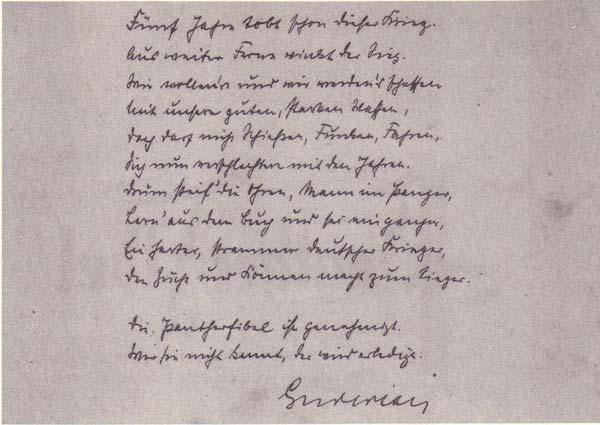 Fünf Jahre tobt schon dieser Krieg.
Aus weiter Ferne winkt der Sieg.
Wir wollen's und wir werden's schaffen
Mit unsern guten, starken Waffen,
doch darf nicht Schießen, Funken, Fahren,
Sich nun verschlechtern mit den Jahren.
Drum steif' die Ohren, Mann im Panzer,
Lern' aus dem Buch und sei ein ganzer,
Ein harter, strammer deutscher Krieger,
den Zucht und Können macht zum Sieger.
Die Pantherfibel ist genehmigt.
Wer sie nicht kennt, der wird erledigt.
Guderian